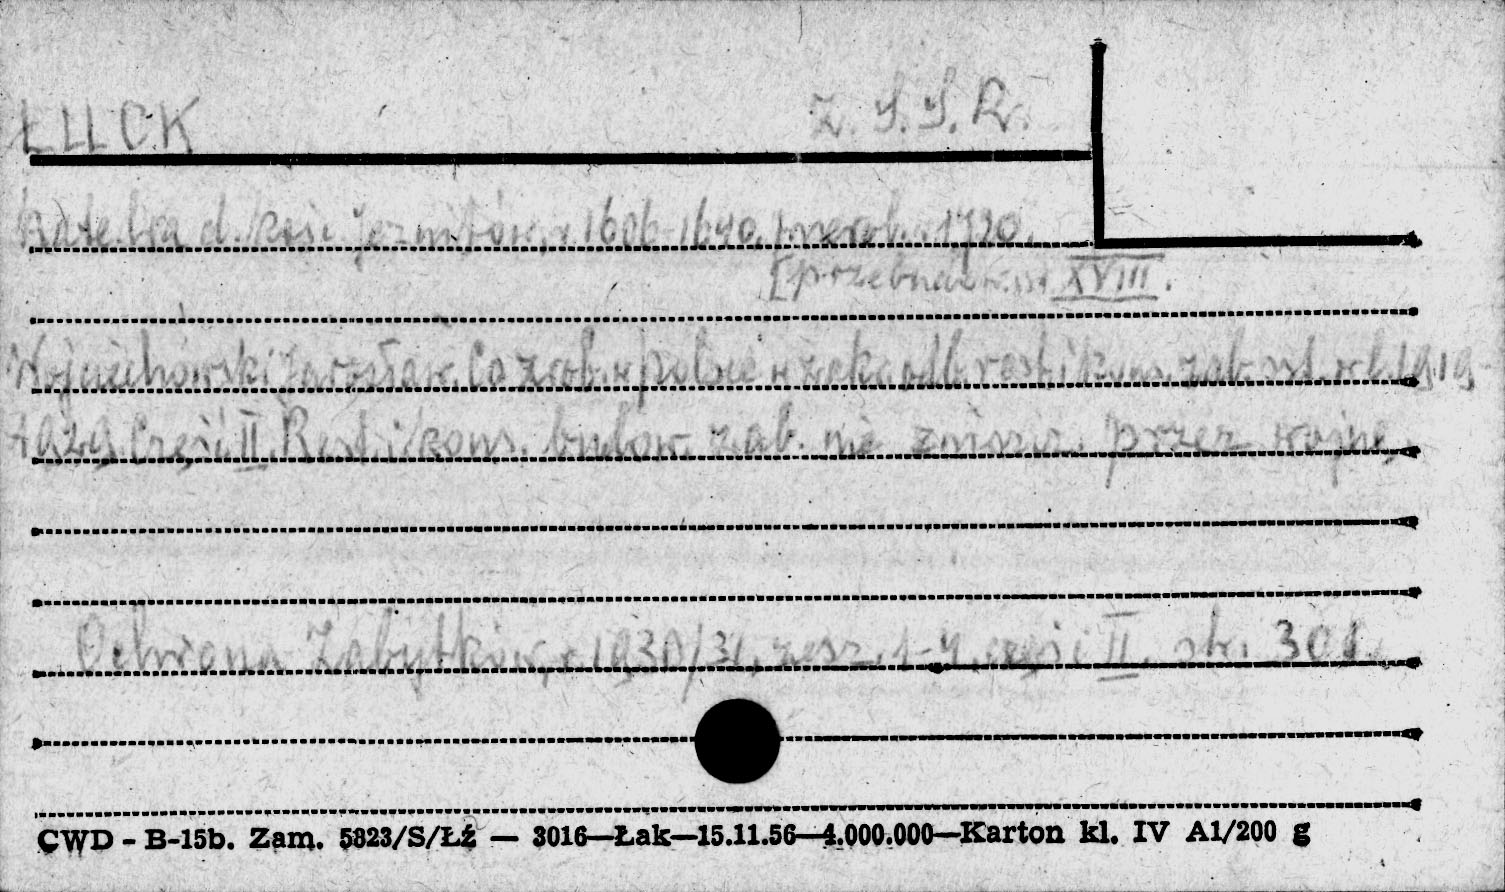 ŁUCK Z. S. S. R.
Katedra d. kośc. jezuitów, r. 1606-1640, przerob. r. 1720.
[przebudow. w XVIII.
Wojciechowski Jarosław, Co zrob. w Polsce w zakr. odb. rest. i kons. zab. szt. w l. 1919-
1929. Część II. Rest. i kons. budow. zab. nie zniszcz. przez wojnę,
Ochrona Zabytków, r. 1930/31, zesz. 1-4, część II, str. 301.
CWD - B-15b. Zam. 5823/S/Łź — 3016—Łak—15.11.56—4.000.000—Karton kl. IV A1/200 g